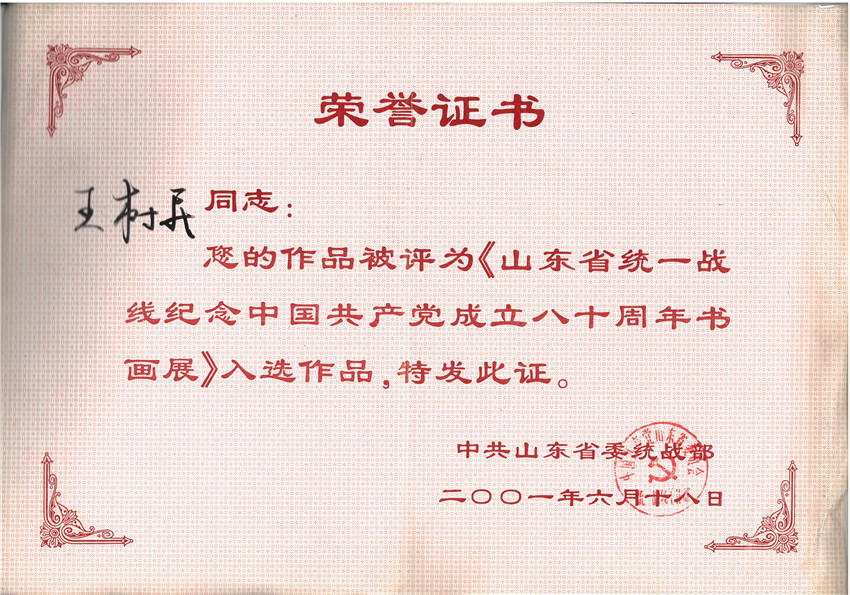 荣誉证书
王树兵同志:
您的作品被评为《山东省统一战
线纪念中国共产党成立八十周年书
画展》入选作品,特发此证。
中共山东省委统战部
二〇〇一年六月十八日